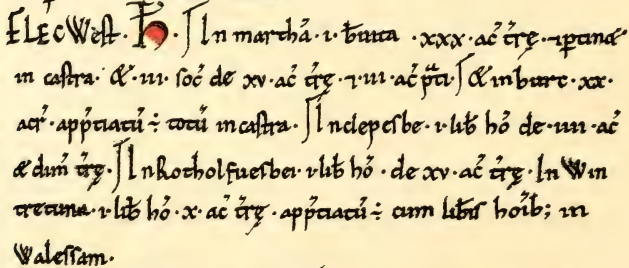 FLEC West. H̃. ∫ In marthā. i. b̄uita. xxx. ac̄ t̄rę. ⁊ ꝑtinæ
in castra. & .iii. soc̄ de xv. ac̄ t̄rę. ⁊ iii. ac̄ p̄ti ∫ & in burc. xx.
acr̄. app̄tiatū ÷ totū in castra. ∫ In clepesbe. i. lib̄ hō de .iiii. ac̄
& dim̄ t̄rę. ∫ In Rotholfuesbei i lib̄ hō. de xv. ac̄ t̄rę. In Win
tretuna. i. lib̄ hō. x. ac̄ t̄rę. app̄tiatū ÷ cum lib̄is hoīb; in
Walessam.